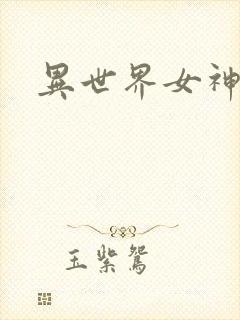 異世界女神
玉紫鴛